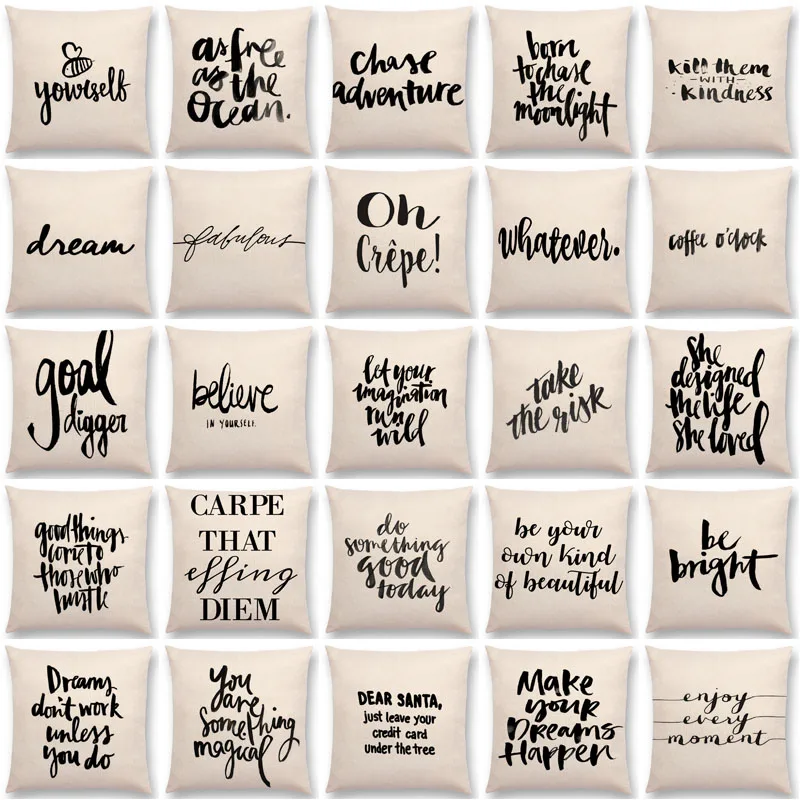 yourself
as free
as the
Ocean.
chase
adventure
born
to chase
the
moonlight
kill them
-WITH-
kindness
dream
fabulous
Oh
Crêpe!
whatever.
coffee o'clock
goal
digger
believe
IN YOURSELF.
let your
imagination
run
wild
take
the risk
She
designed
the life
She loved
good things
come to
those who
hustle
CARPE
THAT
effing
DIEM
do
something
good
today
be your
own kind
of beautiful
be
bright
Dreams
don't work
unless
you do
You
are
Something
magical
DEAR SANTA,
just leave your
credit card
under the tree
Make
your
Dreams
Happen
enjoy
every
moment